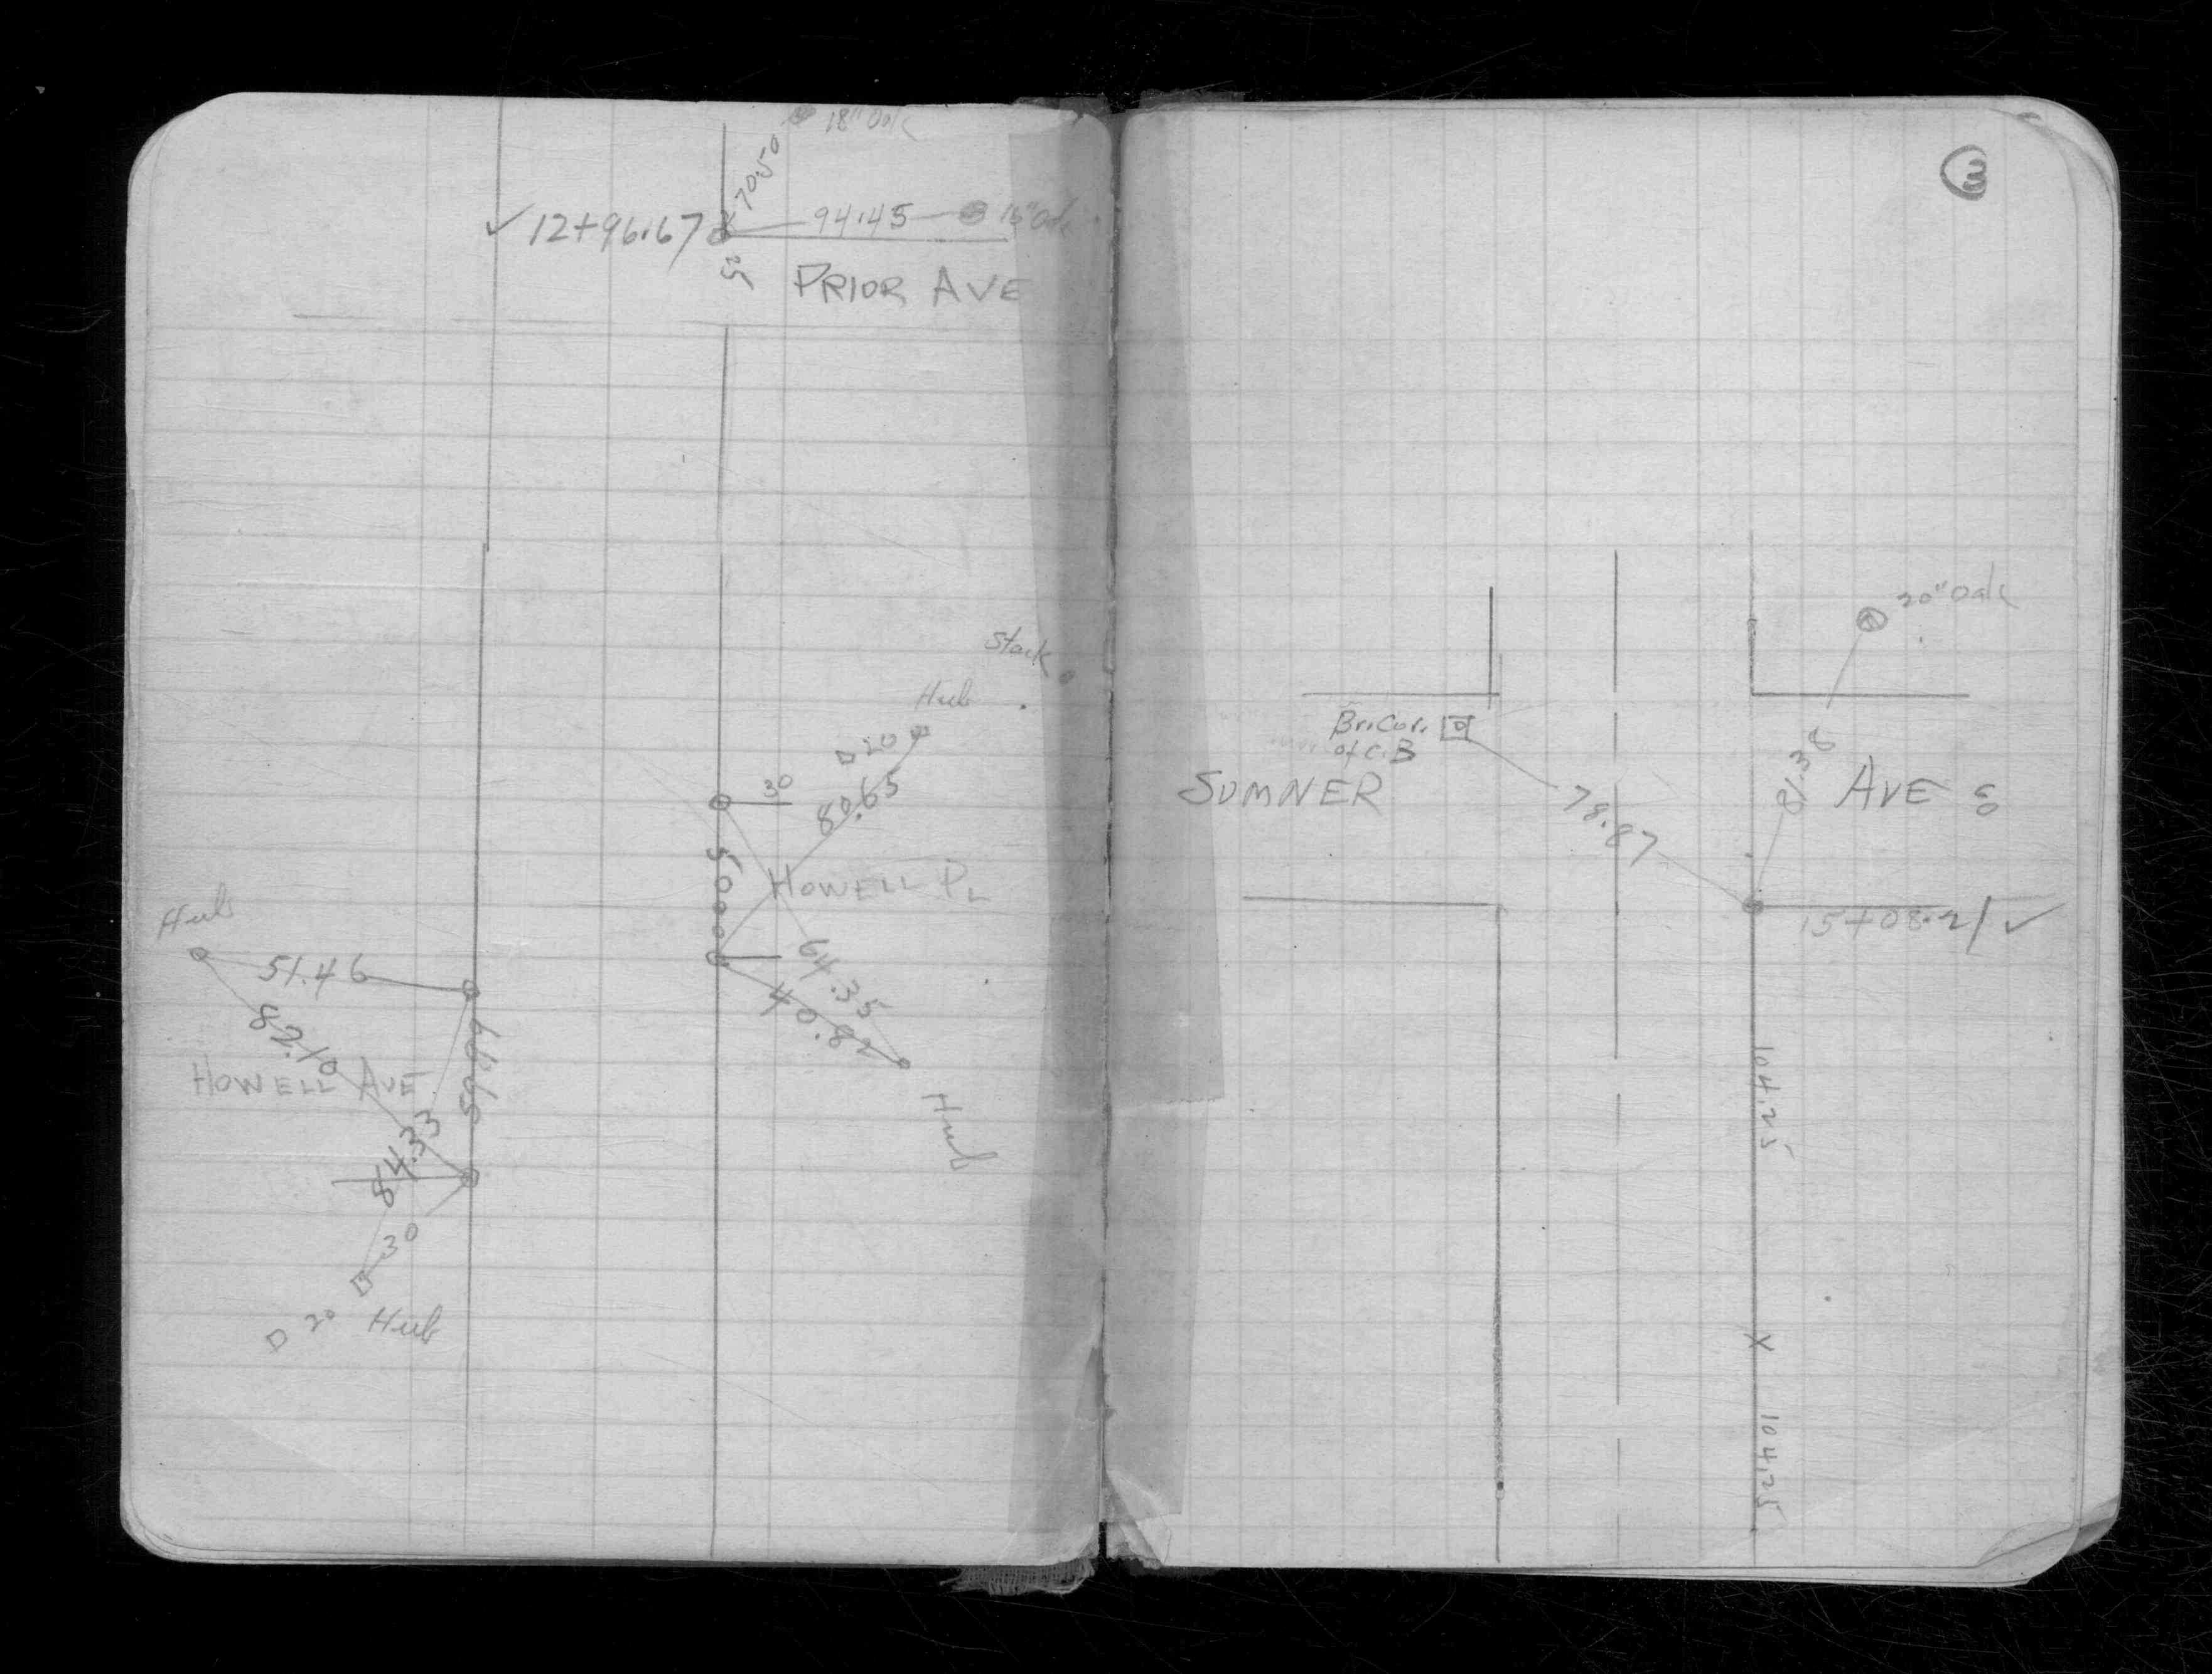 18" Oak
70.50
✓ 12+96.67
94.45
16" Oak
25
PRIOR AVE
Stack
Hub
20
80.65
30
50.00
HOWELL PL
64.35
40.82
Hub
Hub
51.46
82.10
HOWELL AVE
84.33
30
20
Hub
3
20" Oak
Br. Cor.
of C.B
SUMNER
78.87
81.38
AVE
15+08.21 ✓
104.25
X
104.25